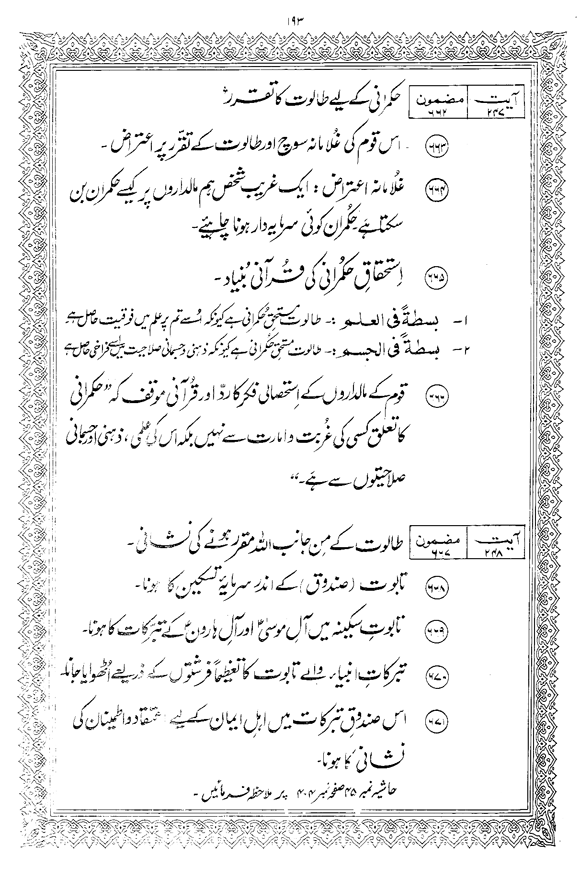 ۱۹۳
آیت ۲۴۷ مضمون ۶۶۲ حکمرانی کے لیے طالوت کا تقرر
۶۶۳ ۔ اس قوم کی غلامانہ سوچ اور طالوت کے تقرر پر اعتراض ۔
۶۶۴ غلامانہ اعتراض : ایک غریب شخص ہم مالداروں پر کیسے حکمران بن
سکتا ہے حکمران کوئی سرمایہ دار ہونا چاہئیے۔
۶۶۵ اِستحقاقِ حکمرانی کی قرآنی بُنیاد ۔
۱- بسطةً فی العلم :۔ طالوت مستحق حکمرانی ہے کیونکہ اُسے تم پر علم میں فوقیت حاصل ہے
۲- بسطةً فی الجسم :۔ طالوت مستحق حکمرانی ہے کیونکہ ذہنی و جسمانی صلاحیت میں اسے فراخی حاصل ہے
۶۶۶ قوم کے مالداروں کے اِستحصالی فکر کا ردّ اور قُرآنی موقف کہ "حکمرانی
کا تعلق کسی کی غُربت و امارت سے نہیں بلکہ اس کی علمی ، ذہنی اور جسمانی
صلاحیتوں سے ہے۔"
آیت ۲۴۸ مضمون ۶۶۷ طالوت کے مِن جانب اللہ مقرر ہونے کی نشانی ۔
۶۶۸ تابوت (صندوق) کے اندر سرمایۂ تسکین کا ہونا۔
۶۶۹ تابوتِ سکینہ میں آلِ موسیٰؑ اور آلِ ہارونؑ کے تبرکات کا ہونا۔
۶۷۰ تبرکاتِ انبیاء والے تابوت کا تعظیماً فرشتوں کے ذریعے اُٹھوایا جانا۔
۶۷۱ اس صندوق تبرکات میں اہلِ ایمان کے لیے اعتقاد و اطمینان کی
نشانی کا ہونا۔
حاشیہ نمبر ۴۵ صفحہ نمبر ۴۰۴ پر ملاحظہ فرمائیں ۔